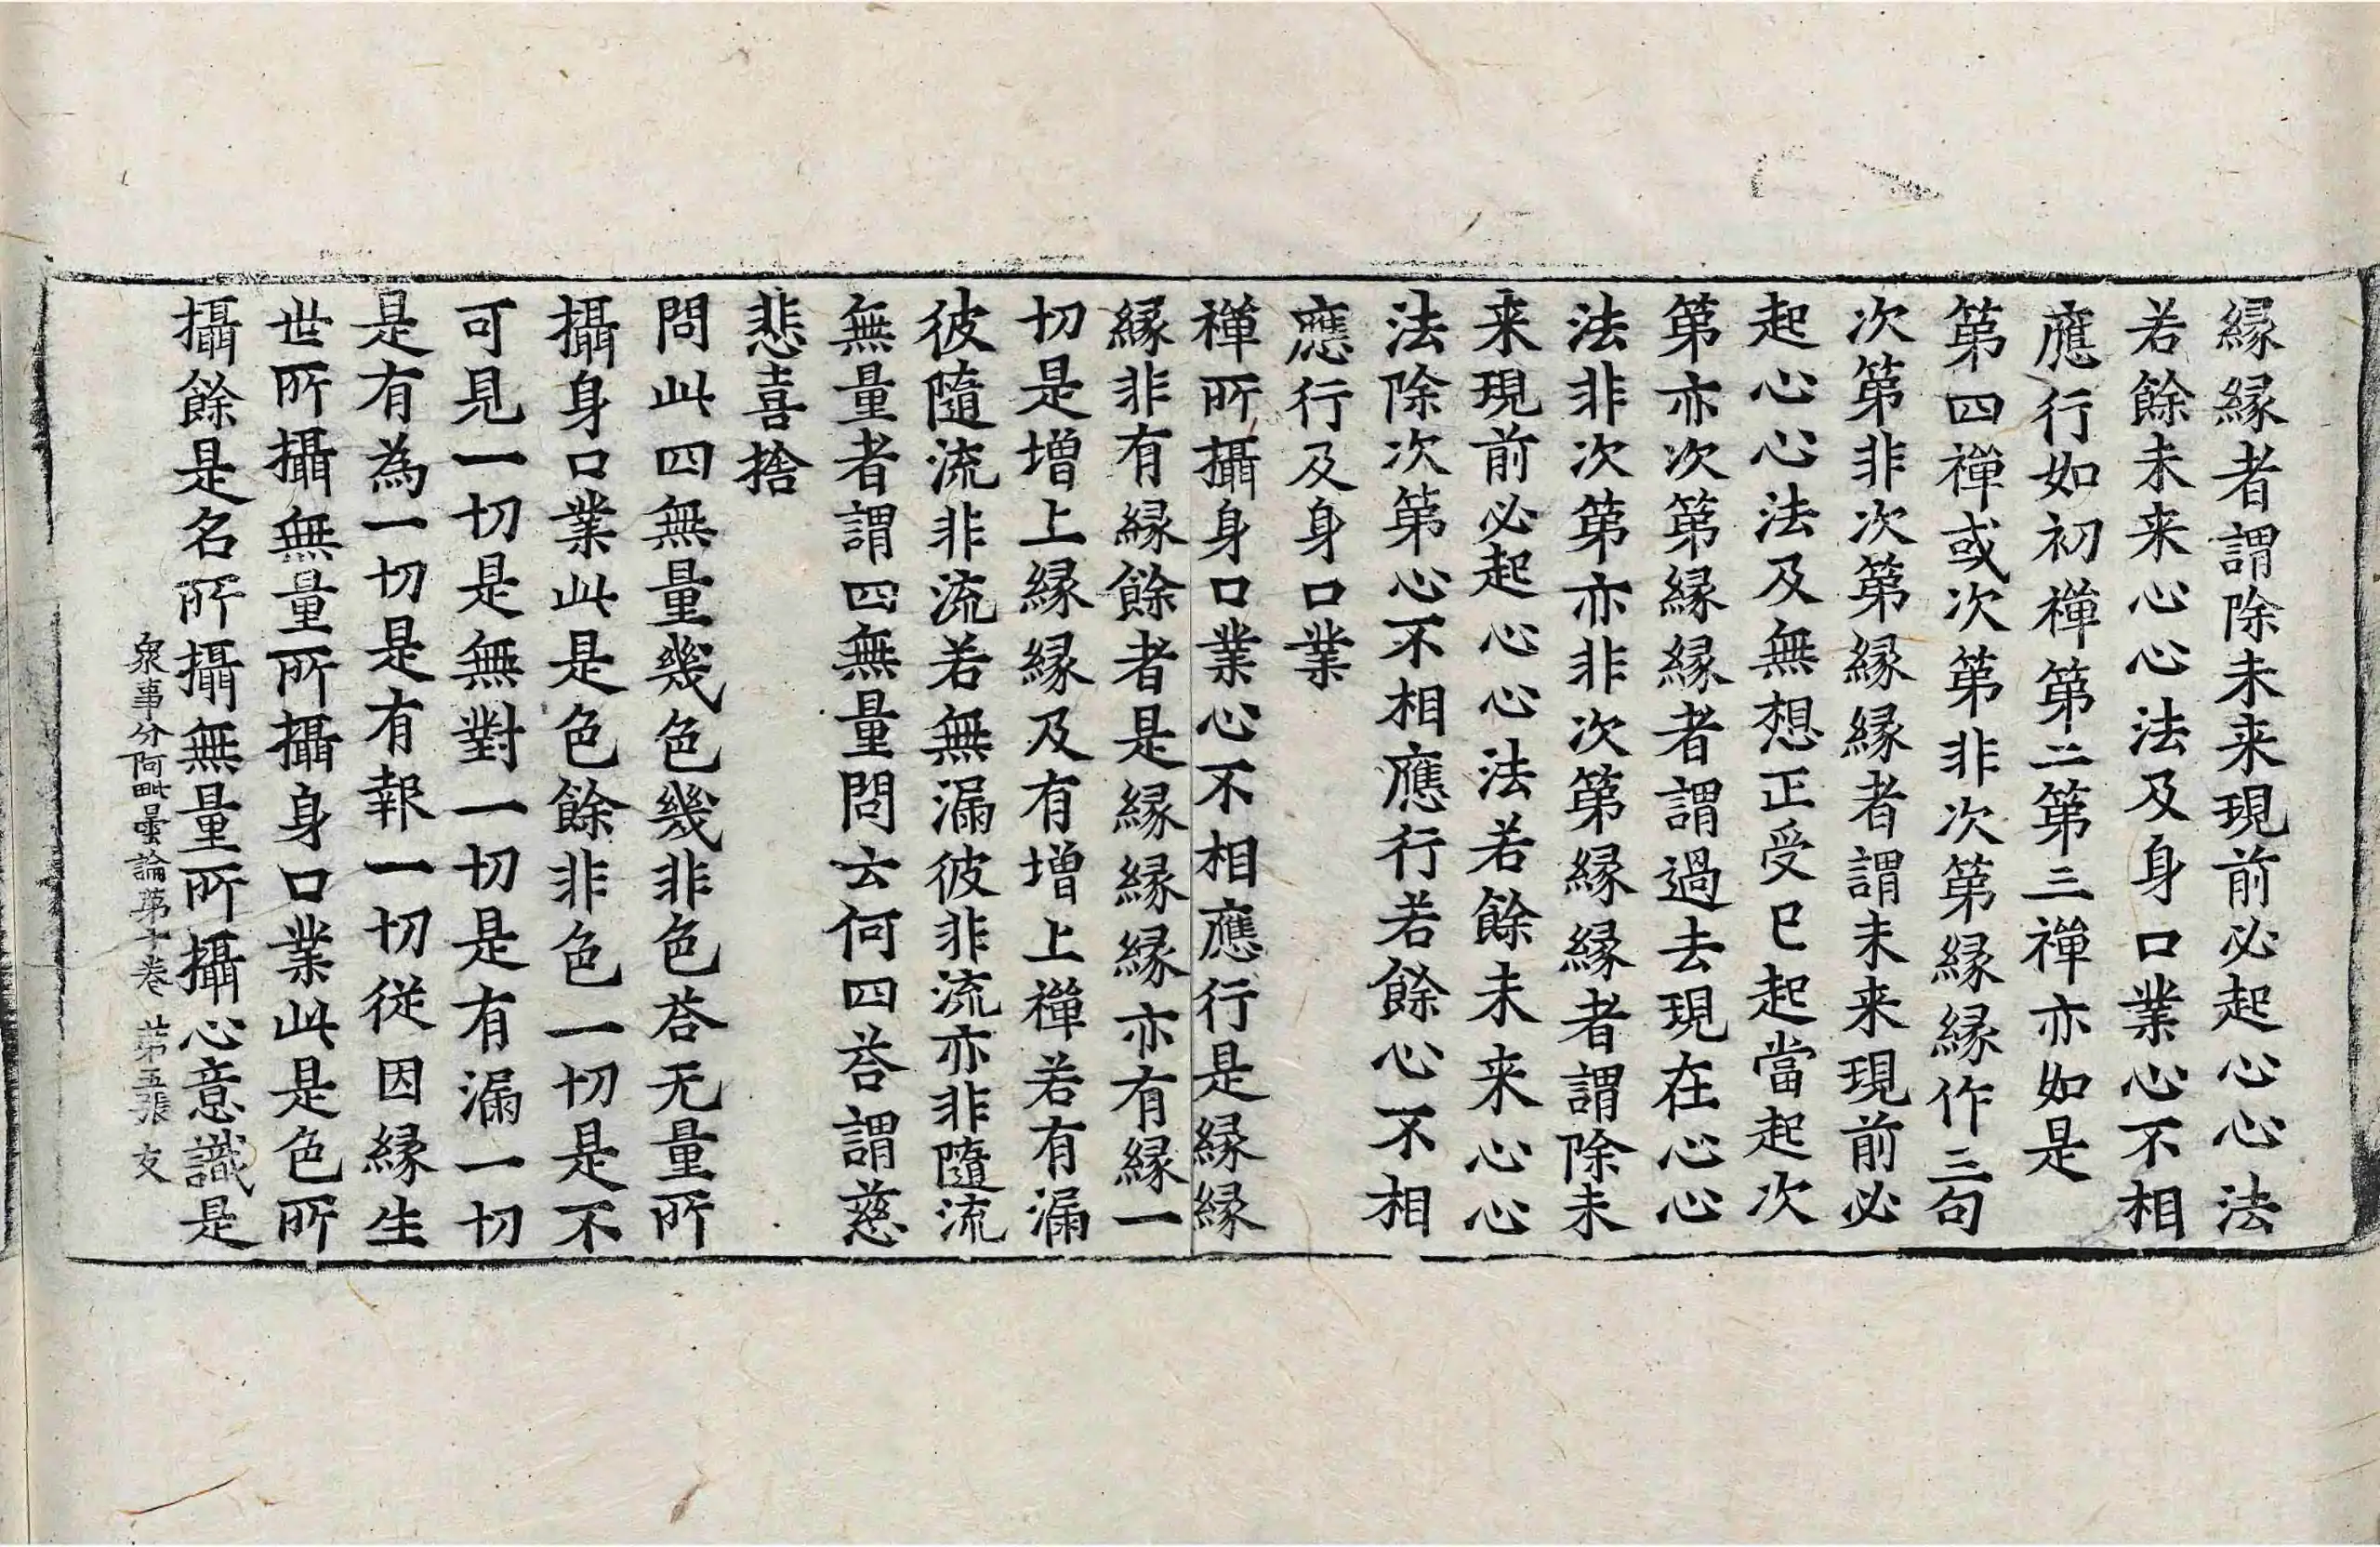 縁縁者謂除未来現前必起心心法
若餘未来心心法及身口業心不相
應行如初禪第二第三禪亦如是
第四禪或次第非次第縁縁作三句
次第非次第縁縁者謂未来現前必
起心心法及無想正受已起當起次
第亦次第縁縁者謂過去現在心心
法非次第亦非次第縁縁者謂除未
来現前必起心心法若餘未来心心
法除次第心不相應行若餘心不相
應行及身口業
禪所攝身口業心不相應行是縁縁
縁非有縁餘者是縁縁縁亦有縁一
切是增上縁縁及有增上禪若有漏
彼隨流非流若無漏彼非流亦非隨流
無量者謂四無量問云何四荅謂慈
悲喜捨
問此四無量幾色幾非色荅无量所
攝身口業此是色餘非色一切是不
可見一切是無對一切是有漏一切
是有為一切是有報一切從因縁生
世所攝無量所攝身口業此是色所
攝餘是名所攝無量所攝心意識是
衆事分阿毗曇論第十卷 第五張 友